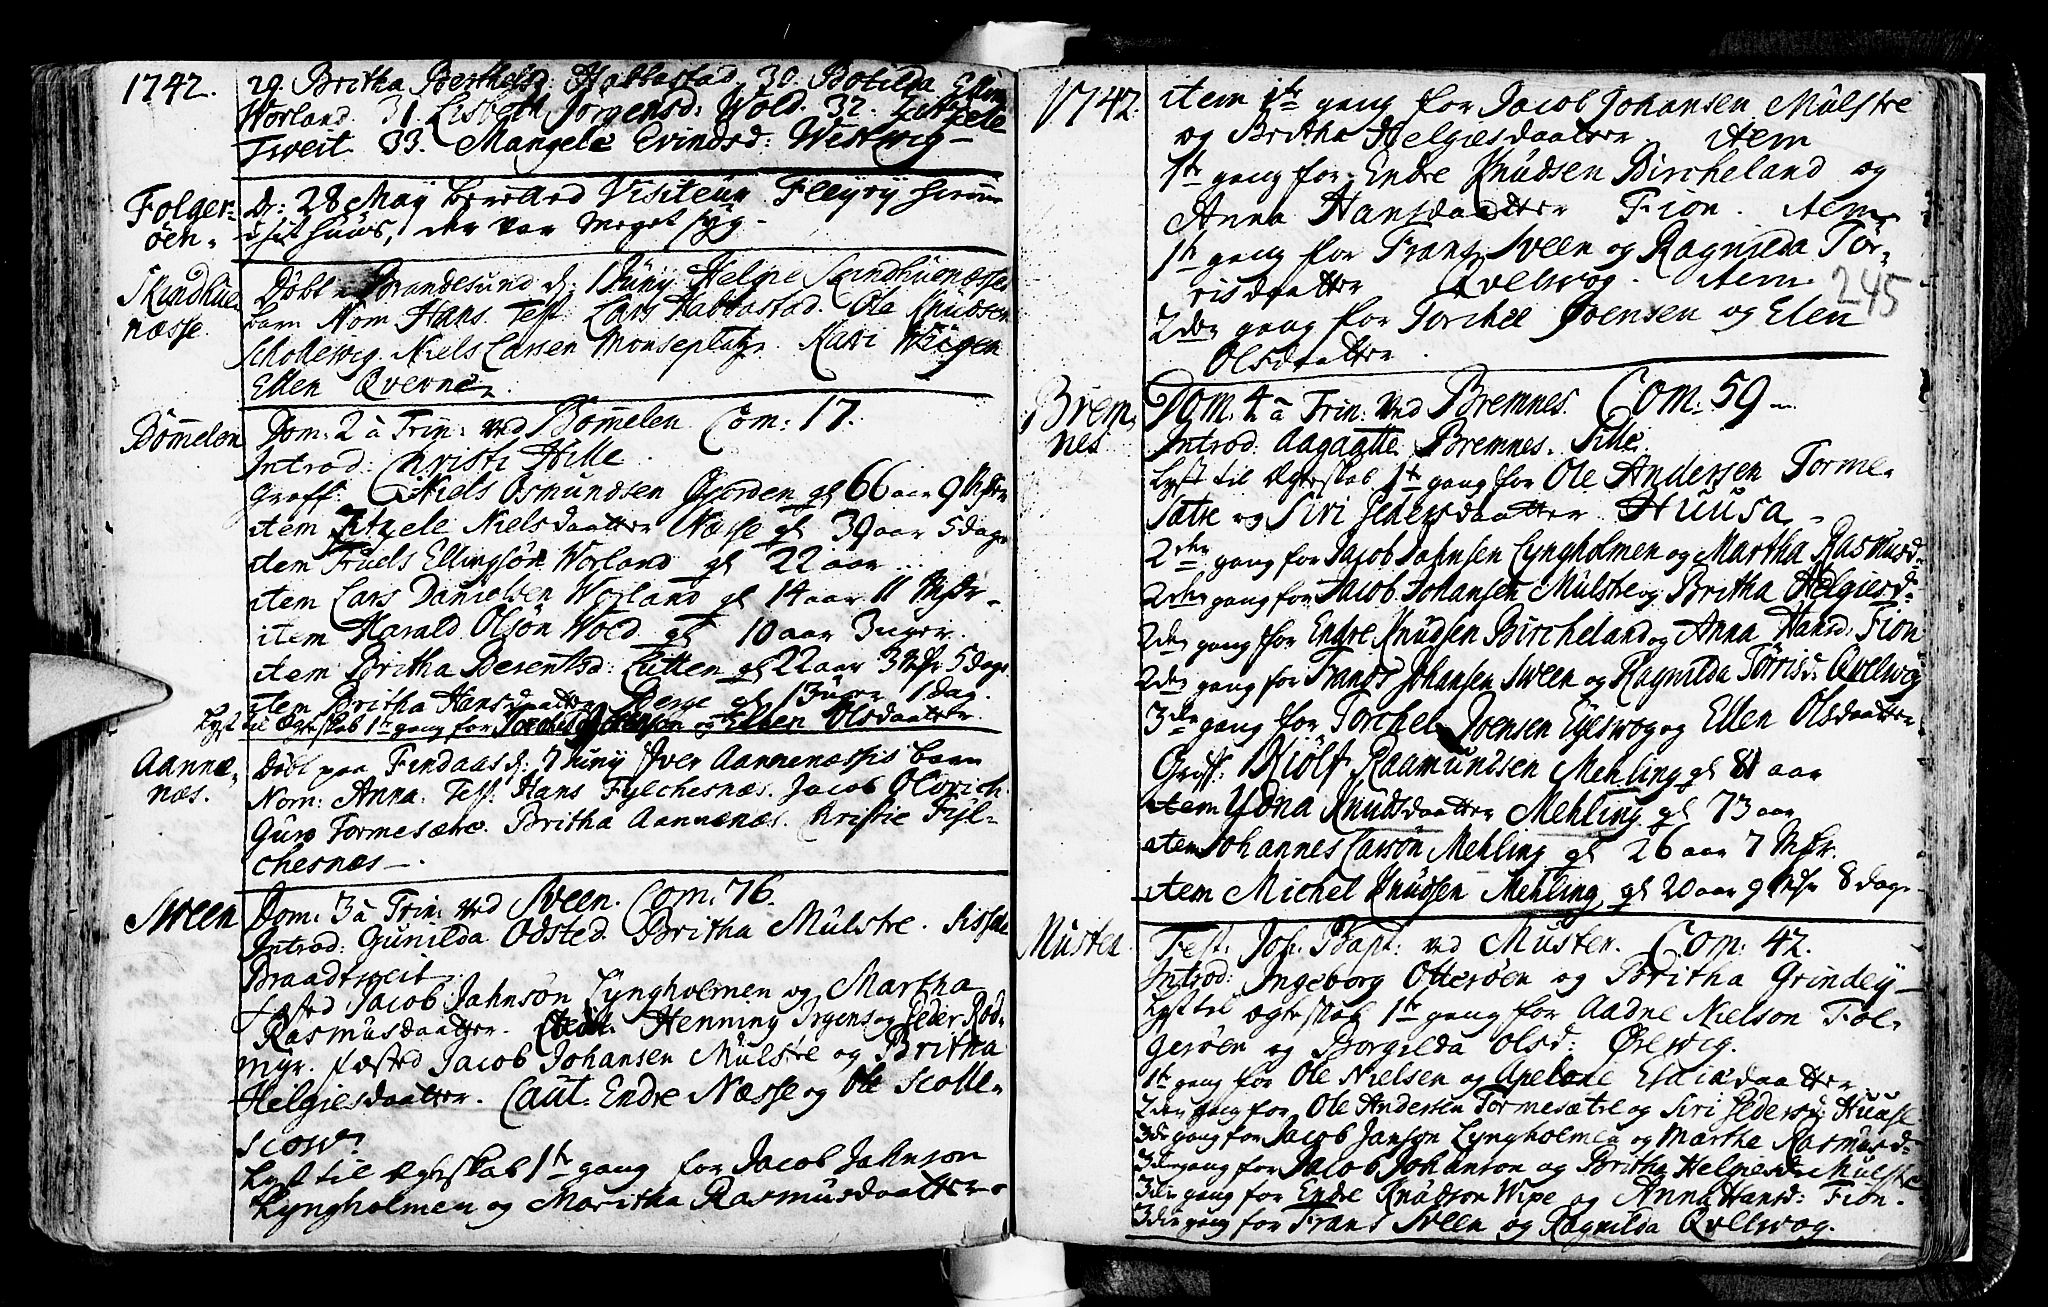 1742.
29. Britha Berthelsd: Habbastad. 30. Botilda Elling
Worland. 31. Lisbeth Jörgensd: Wold. 32. Zitzele
Tweit. 33. Mangele Evindsd: Westwig
Folger-
öen.
D: 28 May beretted Visiteur Fleyry
i sit huus, der var meget syg.
Skindhue
næsse.
Döbt Brandesund d: 1 Juny Helgie Skindhuenæsses
barn Nom Hans. Test: Lars Habbastad. Ole Knudsen
Schollewig. Niels Larsen Monseplatz. Kari
Ellen Qverne
Bömelen
Dom: 2 à Trin: ved Bömelen Com: 17.
Introd: Christi Hille
Graff: Niels Osmundsen Gjorden gl 66 aar 9
item Zitzele Nielsdaatter Næsse gl 39 aar 5 dage
item Truels Ellingsön Worland gl 22 aar
item Lars Danielsen Worland gl 14 aar 11
item Harald Olsön Wold gl 10 aar 3 uger.
item Britha Berentsd: Lutten gl 22 aar 3 5 dage
item Britha Hansdaatter gl 13 uger 1 dag.
Lyst til Egteskab 1te gang for og Ellen Olsdaatter
Aannæ-
næs.
Döbt paa Findaas d: 7 Juny Iver Aannenæssis barn
Nom: Anna. Test: Hans Fylchesnæs. Jacob
Guro Tormesætre. Britha Aannenæs. Kristie Fyl-
chesnæs
Sveen
Dom: 3 à Trin: ved Sveen. Com: 76.
Introd: Gunilda Odsted. Britha Mulstre. Sissele
Braadtweit
fæsted Jacob Jahnsön Lyngholmen og Martha
Rasmusdaatter. Caut. Henning og Peder Rod-
myr. fæsted Jacob Johansen Mulstre og Britha
Helgiesdaatter. Caut. Endre Næsse og Ole Scolle-
scow
Lyst til Egteskab 1te gang for Jacob Jahnson
Lyngholmen og Maritha Rasmusdaatter
1742
item 1te gang for Jacob Johansen Mulstre
og Britha Helgiesdaatter item
1te gang for Endre Knudsen Bircheland og
Anna Hansdaatter Fion. item
1te gang for Frans Sveen og Ragnilda Tör-
risdaatter Qvelwog. item
245
2den gang for Torchel Joensen og Elen
Olsdaatter
Brem-
nes
Dom: 4 à Trin: ved Bremnes. Com. 59
Introd: Aagaatte Bremnes. Sille
Lyst til Egteskab 1te gang for Ole Andersen Torme-
sætre og Siri Pedersdaatter Huusa
2den gang for Jacob Jahnsen Lyngholmen og Martha Rasmusd:
2den gang for Jacob Johansen Mulstre og Britha Helgiesd:
2den gang for Endre Knudsen Bircheland og Anna Hansd: Fion
2den gang for Frands Johansen Sveen og Ragnilda Törrisd: Qvelwog
3die gang for Torchel Joensen og Ellen Olsdaatter
Graff: Kiolf Raamundsen Mehling gl 81 aar
item Ydna Knudsdaatter Mehling gl 73 aar
item Johannes Larsön Mehling gl 26 aar 7
item Michel Knudsen Mehling gl 20 aar 9 8 dage
Muster
Fest: Joh: Bapt: ved Muster. Com: 42.
Introd: Ingeborg Otteröen og Britha Grindey
Lyst til Egteskab 1te gang for Aadne Nielson Fol-
geröen og Borgilda Olsd: Ørewig.
1te gang for Ole Nielsen og Apelone
2den gang for Ole Andersen Tormesætre og Siri Pedersd: Huuse
3die gang for Jacob Janson Lyngholmen og Martha Rasmusd:
3die gang for Jacob Johanson og Britha Helgiesd: Mulstre
3die gang for Endre Knudson Wipe og Anna Hansd: Fion.
3die gang for Frans Sveen og Ragnilda Qvelwog.